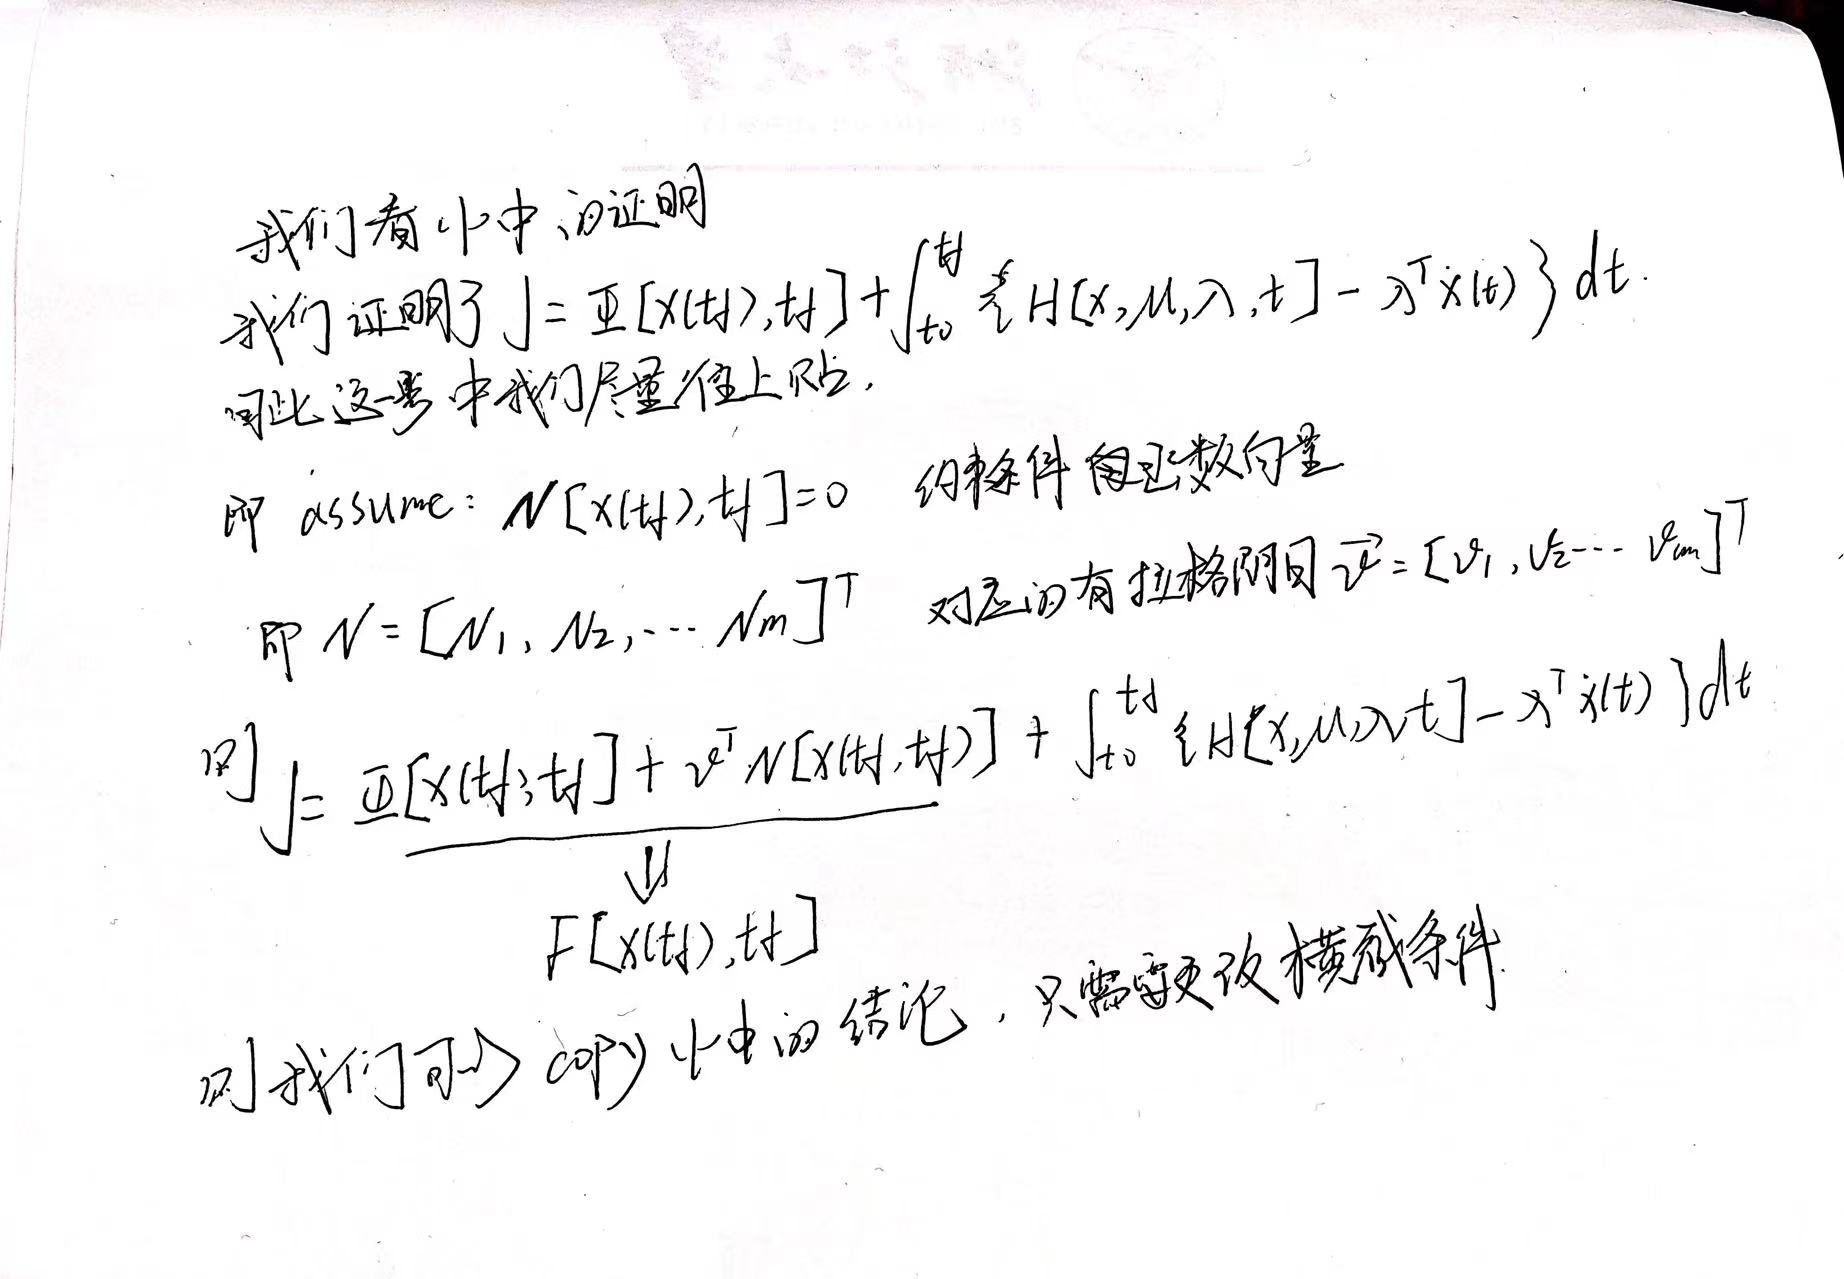 我们看小中的证明
我们证明了 J = Φ[x(tf), tf] + ∫_{t0}^{tf} {H[x, u, λ, t] - λ^T ẋ(t)} dt.
因此这一步中我们尽量往上贴.
即 assume: N[x(tf), tf] = 0 约束条件 函数向量
即 N = [N1, N2, ... Nm]^T 对应的有拉格朗日 v⃗ = [v1, v2 ... vm]^T
则 J = Φ[x(tf), tf] + v^T N[x(tf, tf)] + ∫_{t0}^{tf} {H[x, u, λ t] - λ^T ẋ(t)} dt
⇓
F[x(tf), tf]
则我们可以 copy 小中的结论, 只需要更改横截条件.